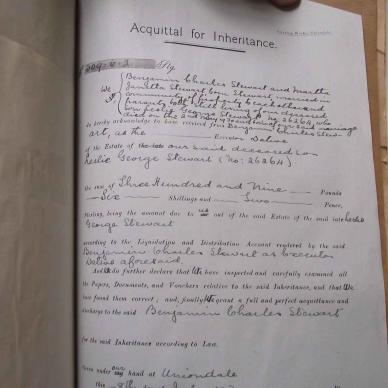 Acquittal for Inheritance.
£309-6-2. Stg.
We Benjamin Charles Stewart and Martha
Janetta Stewart born Stewart, married in
community of property to each other and
parents
Leslie George Stewart No. 26264 who
died on the
do hereby acknowledge to have received from Benjamin Charles Stew-
art, as the Executor Dative
of the Estate of the late our said deceased son
Leslie George Stewart (No: 26264)
the sum of Three Hundred and Nine Pounds
Six Shillings and Two Pence,
Sterling, being the amount due to us out of the said Estate of the said late Leslie
George Stewart
according to the Liquidation and Distribution Account rendered by the said
Benjamin Charles Stewart as Executor
Dative aforesaid.
And We do further declare that We have inspected and carefully examined all
the Papers, Documents, and Vouchers relative to the said Inheritance, and that We
have found them correct; and, finally, We grant a full and perfect acquittance and
discharge to the said Benjamin Charles Stewart
for the said Inheritance according to Law.
Given under our hand at Uniondale
this